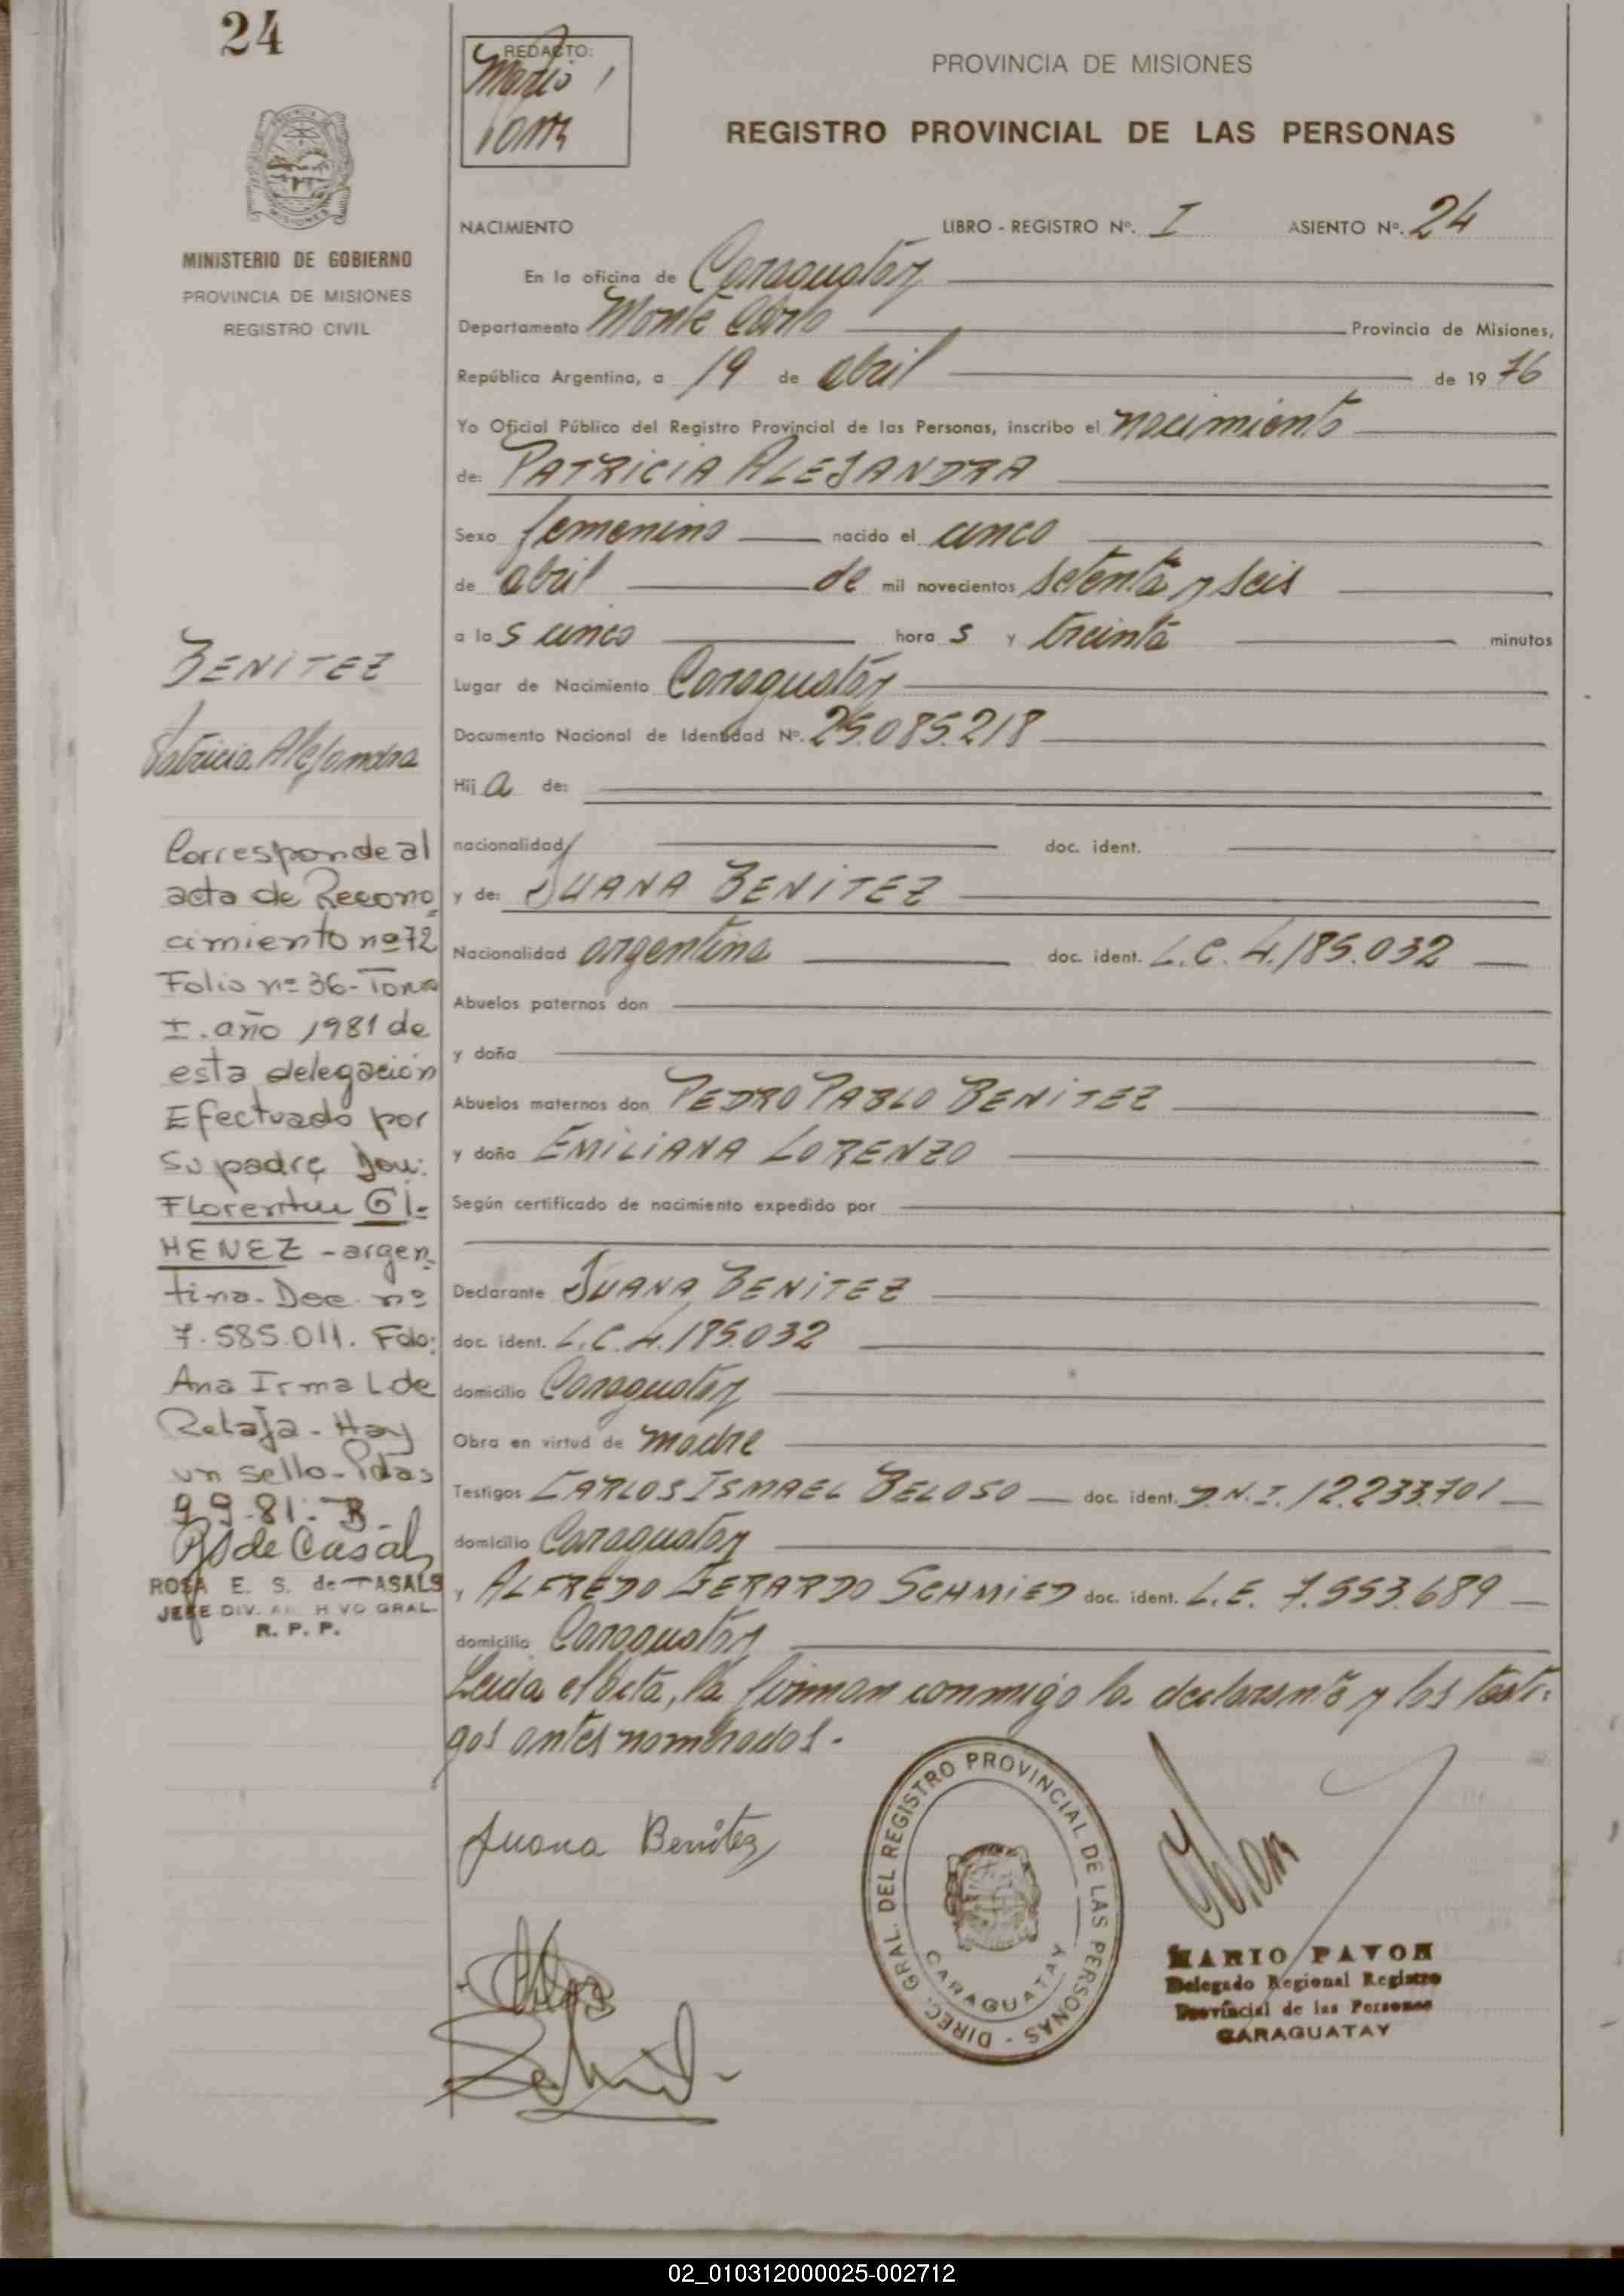 24
REDACTO:
Mario
PROVINCIA DE MISIONES
REGISTRO PROVINCIAL DE LAS PERSONAS
MISIONES
MINISTERIO DE GOBIERNO
PROVINCIA DE MISIONES
REGISTRO CIVIL
NACIMIENTO LIBRO - REGISTRO Nº. I ASIENTO Nº. 24
En la oficina de Caraguatay
Departamento Monte Carlo Provincia de Misiones,
República Argentina, a 19 de abril de 19 76
Yo Oficial Público del Registro Provincial de las Personas, inscribo el nacimiento
de: PATRICIA ALEJANDRA
Sexo femenino nacido el cinco
de abril de mil novecientos setenta y seis
a las cinco horas y treinta minutos
Lugar de Nacimiento Caraguatay
Documento Nacional de Identidad Nº. 25.085.218
Hija de:
nacionalidad doc. ident.
y de: JUANA BENITEZ
Nacionalidad argentina doc. ident. L.C. 4.185.032
Abuelos paternos don
y doña
Abuelos maternos don PEDRO PABLO BENITEZ
y doña EMILIANA LORENZO
Según certificado de nacimiento expedido por
Declarante JUANA BENITEZ
doc. ident. L.C. 4.185.032
domicilio Caraguatay
Obra en virtud de madre
Testigos CARLOS ISMAEL BELOSO doc. ident. D.N.I. 12.233.701
domicilio Caraguatay
y ALFREDO GERARDO SCHMIED doc. ident. L.E. 7.553.689
domicilio Caraguatay
Leida el acta, la firman conmigo la declarante y los testi-
gos antes nombrados.-
BENITEZ
Patricia Alejandra
Corresponde al
acta de Recono
cimiento nº 72
Folio nº 36- Tomo
I. año 1981 de
esta delegación
Efectuado por
su padre Don:
Florentin GI-
MENEZ - argen
tino. Doc. nº
7.585.011. Fdo:
Ana Irma L de
Retaja - Hay
un sello - Pdas
9-9-81.-
R S de Casals
ROSA E. S. de CASALS
JEFE DIV. ARCHIVO GRAL.
R. P. P.
Juana Benitez
DIREC. GRAL. DEL REGISTRO PROVINCIAL DE LAS PERSONAS -
CARAGUATAY
MARIO PAVON
Delegado Regional Registro
Provincial de las Personas
CARAGUATAY
02_010312000025-002712